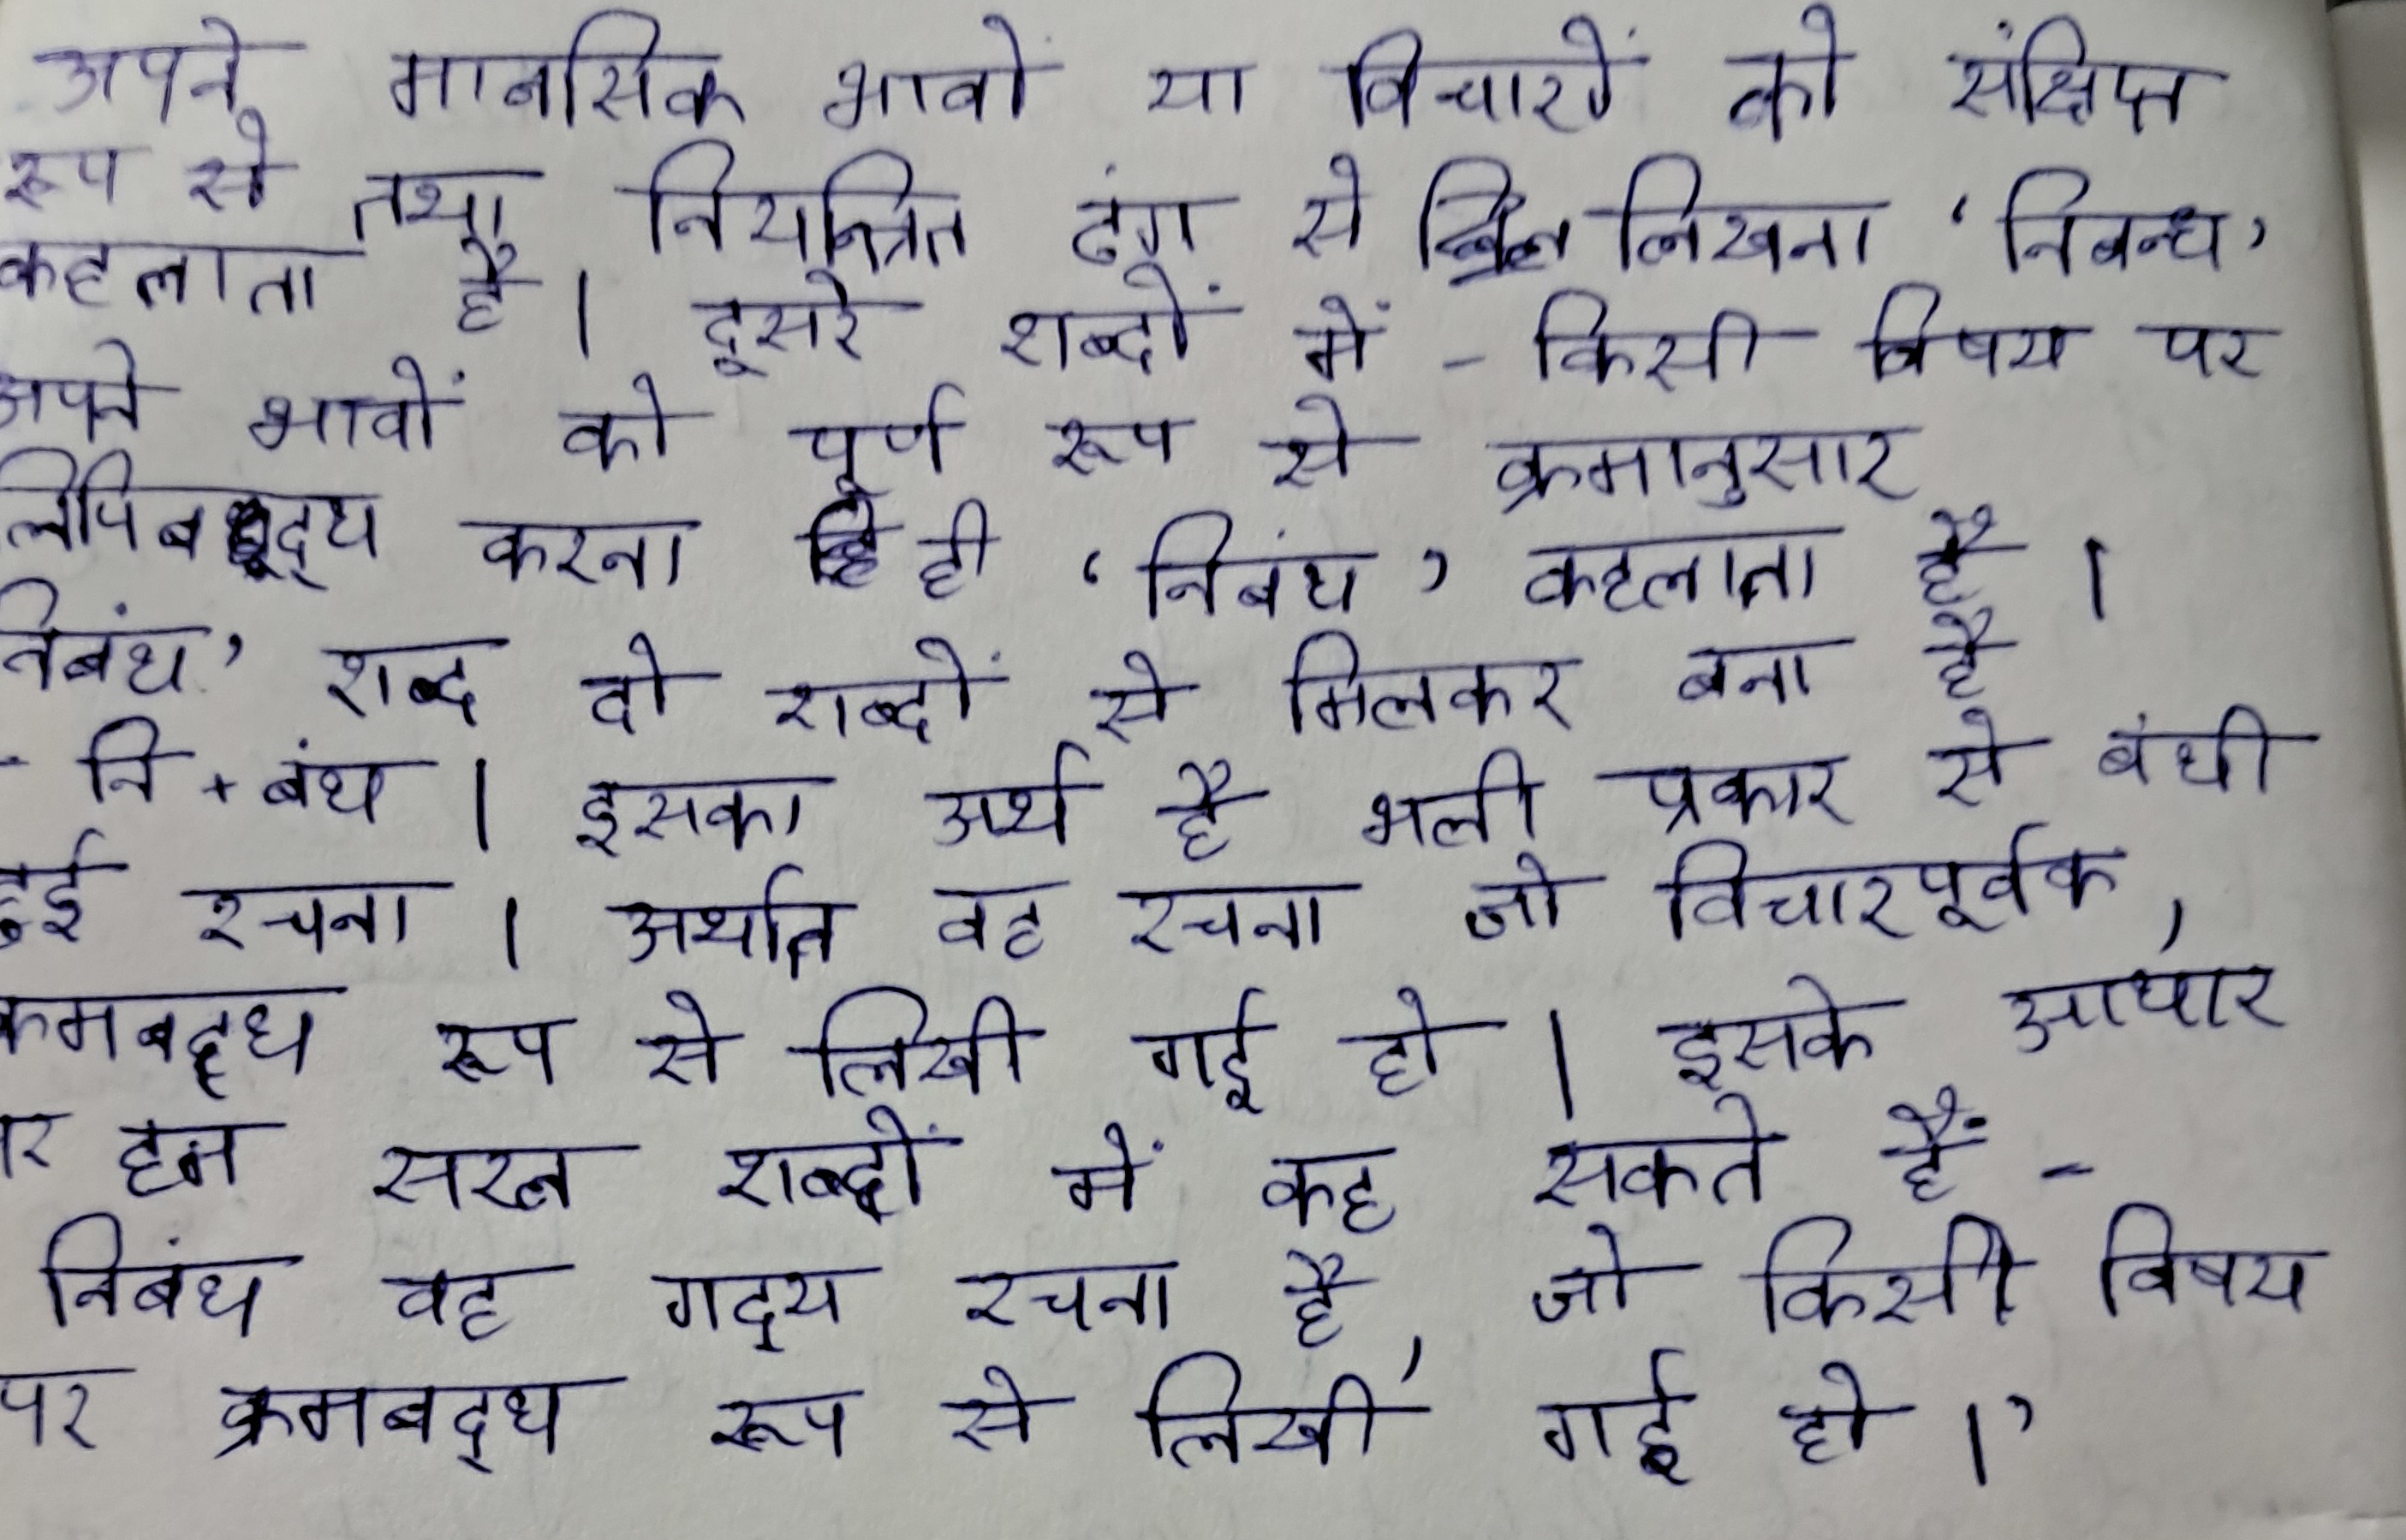 अपने मानसिक भावों या विचारों को संक्षिप्त
रूप से तथा नियन्त्रित ढंग से लिखना 'निबन्ध'
कहलाता है । दूसरे शब्दों में - किसी विषय पर
अपने भावों को पूर्ण रूप से क्रमानुसार
लिपिबद्ध करना ही 'निबंध' कहलाता है ।
निबंध' शब्द दो शब्दों से मिलकर बना है
- नि + बंध । इसका अर्थ है भली प्रकार से बंधी
हुई रचना । अर्थात वह रचना जो विचारपूर्वक,
क्रमबद्ध रूप से लिखी गई हो । इसके आधार
पर हम सरल शब्दों में कह सकते हैं -
निबंध वह गद्य रचना है, जो किसी विषय
पर क्रमबद्ध रूप से लिखी गई हो ।'